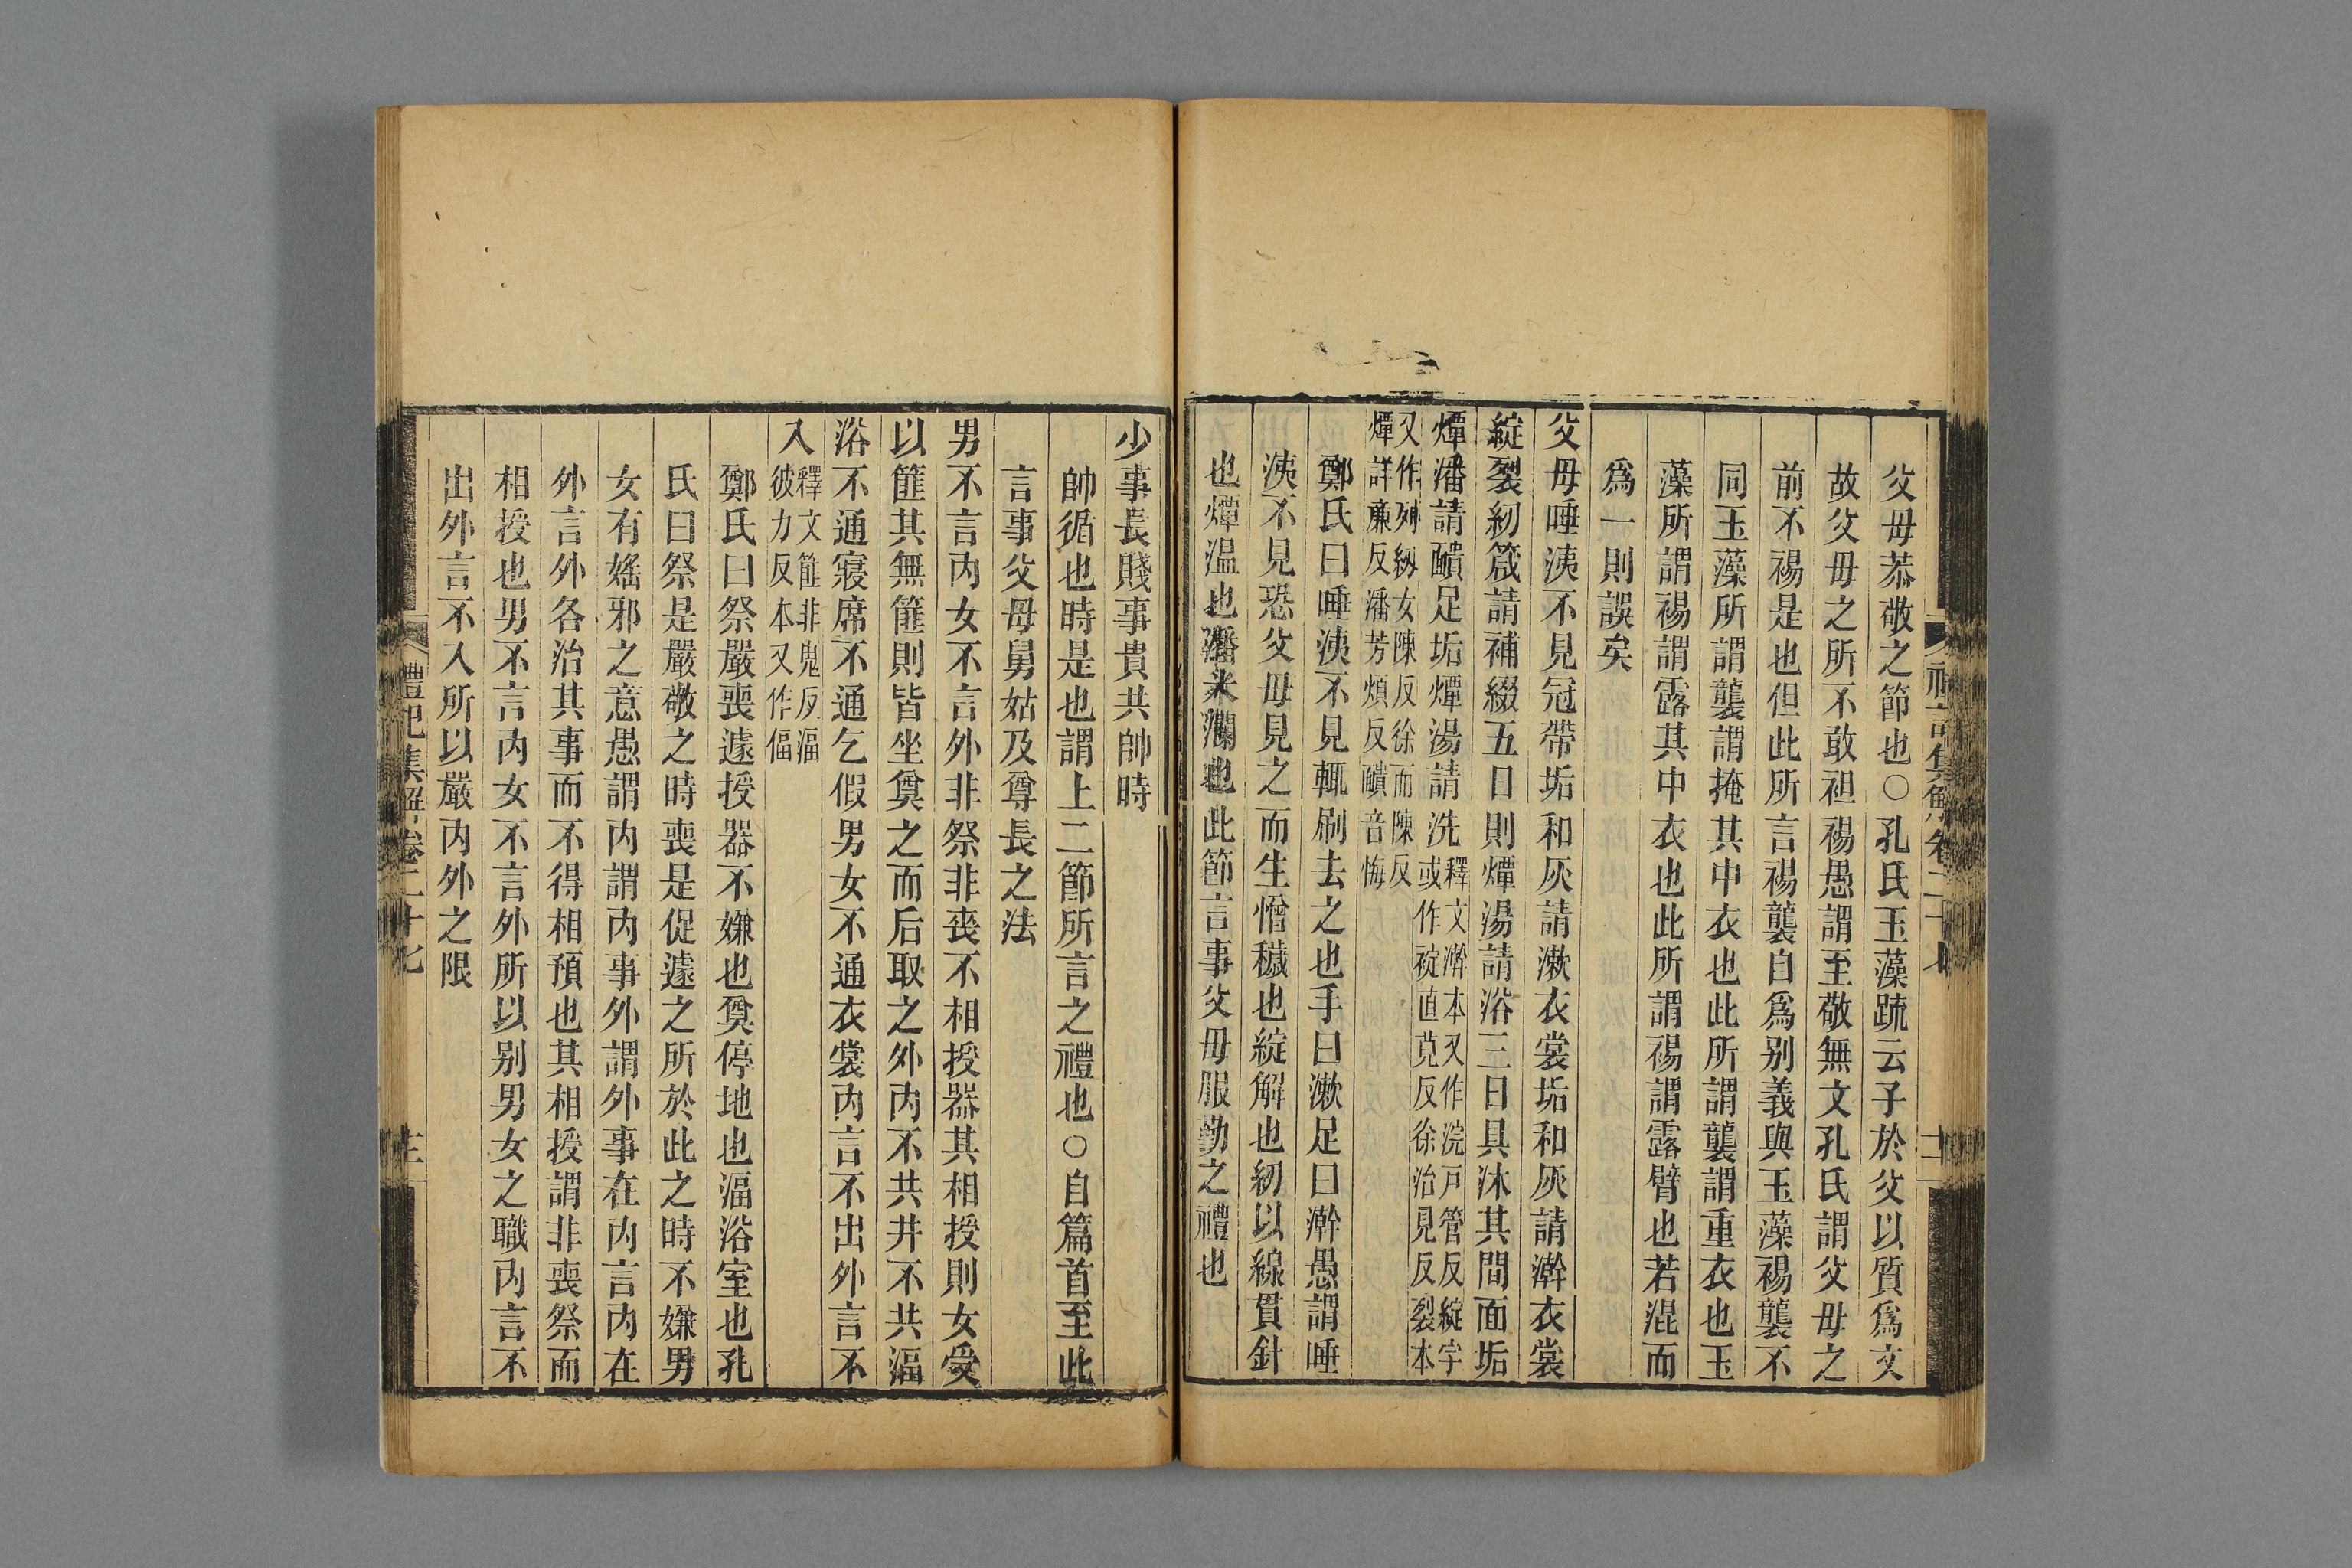 父母恭敬之節也○孔氏玉藻疏云子於父以質爲文
故父母之所不敢袒裼愚謂至敬無文孔氏謂父母之
前不裼是也但此所言裼襲自爲别義與玉藻裼襲不
同玉藻所謂襲謂掩其中衣也此所謂襲謂重衣也玉
藻所謂裼謂露其中衣也此所謂裼謂露臂也若混而
爲一則誤矣
父母唾洟不見冠帶垢和灰請漱衣裳垢和灰請澣衣裳
綻裂紉箴請補綴五日則燂湯請浴三日具沐其間面垢
燂潘請靧足垢燂湯請洗釋文澣本又作浣戸管反綻字或作䘺直莧反徐治見反裂本
又作𠛱紉女陳反徐而陳反燂詳廉反潘芳煩反靧音悔
鄭氏曰唾洟不見輒刷去之也手曰漱足曰澣愚謂唾
洟不見恐父母見之而生憎穢也綻解也紉以線貫針
也燂温也潘米瀾也此節言事父母服勤之禮也
少事長賤事貴共帥時
帥循也時是也謂上二節所言之禮也○自篇首至此
言事父母舅姑及尊長之法
男不言内女不言外非祭非喪不相授器其相授則女受
以篚其無篚則皆坐奠之而后取之外内不共井不共湢
浴不通寢席不通乞假男女不通衣裳内言不出外言不
入釋文篚非鬼反湢彼力反本又作偪
鄭氏曰祭嚴喪遽授器不嫌也奠停地也湢浴室也孔
氏曰祭是嚴敬之時喪是促遽之所於此之時不嫌男
女有婬邪之意愚謂内謂内事外謂外事在内言内在
外言外各治其事而不得相預也其相授謂非喪祭而
相授也男不言内女不言外所以别男女之職内言不
出外言不入所以嚴内外之限
禮記集解卷二十七